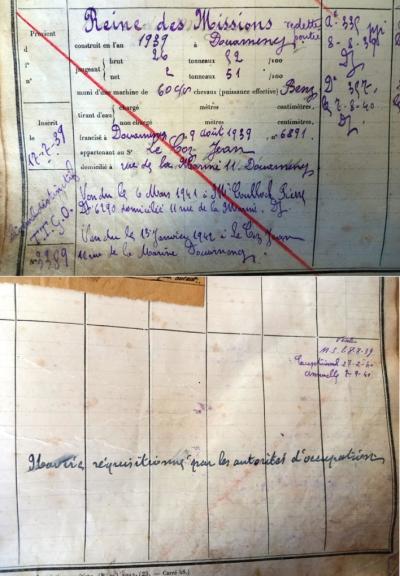 Reine des Moissons
Provient construit en l'an 1939 à Douarnenez
d brut 26 tonneaux 52 /100
l jaugeant
n° net 2 tonneaux 51 /100
muni d'une machine de 60 chevaux (puissance effective) Benz
chargé mètres centimètres.
tirant d'eau
non chargé mètres centimètres,
Inscrit francisé à Douarnenez 9 août 1939, n° 6891.
le appartenant au Sr Le Coz Jean
17-7-39 domicilié à rue de la Marine 11. Douarnenez
Vendu le 6 Mars 1941 à Mr Pierre
Dz 6290 domicilié 11 rue de la Marine. Dz
F.I.G.O.
Vendu le 15 Janvier 1942 à Le Coz Jean
n° 3389 11 rue de la Marine Douarnenez.
8-8-39
Dz
7-8-40
Dz
Visites
M.S. 28.7.39
Exceptionnel 27-2-40
Annuelle 7-9-40
Navire réquisitionné par les autorités d'occupation
Carré 48.)